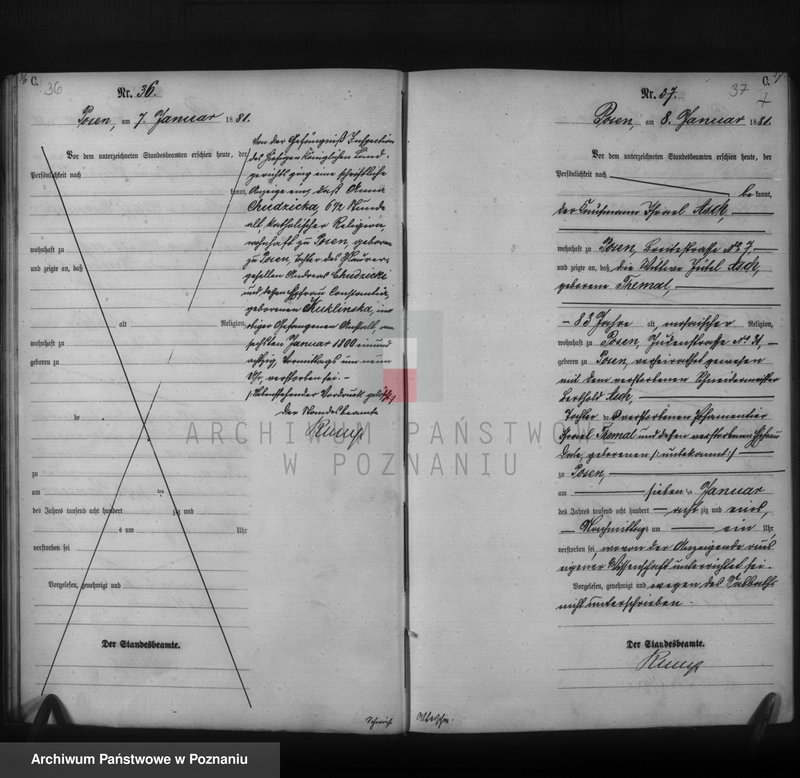 36 C.
36
Nr. 36.
Posen, am 7. Januar 1881.
Vor dem unterzeichneten Standesbeamten erschien heute, der
Persönlichkeit nach
kannt,
wohnhaft zu
und zeigte an, daß
alt Religion,
wohnhaft zu
geboren zu
de
zu
am ten
des Jahres tausend acht hundert zig und
s um Uhr
verstorben sei
Vorgelesen, genehmigt und
Der Standesbeamte.
Von der Gefängniß Inspection
des hiesigen Königlichen Land-
gerichts ging eine schriftliche
Anzeige ein, daß Anna
Chudzicka, 6½ Stunde
alt, katholischer Religion
wohnhaft zu Posen, geboren
zu Posen, Tochter des Maurer-
gesellen Andreas Chudzicki
und dessen Ehefrau Constantia,
geborenen Kuklinska, im
Gefangenen Anstalt, am
sechsten Januar 1800 einund
achtzig, Vormittags um neun
Uhr, verstorben sei. –
Nebenstehender Vordruck gelöscht
Der Standesbeamte
Kump
C. 37
37
Nr. 37.
Posen, am 8. Januar 1881.
Vor dem unterzeichneten Standesbeamten erschien heute, der
Persönlichkeit nach
bekannt,
der Kaufmann Israel Asch,
wohnhaft zu Posen, Breitestrasse No 7,
und zeigte an, daß die Wittwe Jütel Asch,
geborene Themal,
– 83 Jahre alt, mosaischer Religion,
wohnhaft zu Posen, Judenstrasse No 31,
geboren zu Posen, verheirathet gewesen
mit dem verstorbenen Schneidermeister
Berthold Asch,
Tochter des verstorbenen Posamentier
Israel Themal und dessen verstorbenen Ehefrau
geborenen /: unbekannt :/
zu Posen,
am sieben ten Januar
des Jahres tausend acht hundert acht zig und eins,
Nachmittags um ein Uhr,
verstorben sei, wovon der Anzeigende aus
eigener Wissenschaft unterrichtet sei.
Vorgelesen, genehmigt und wegen des Sabbaths
nicht unterschrieben.
Der Standesbeamte.
Kump
ARCHIWUM PAŃSTWOWE
W POZNANIU
Archiwum Państwowe w Poznaniu